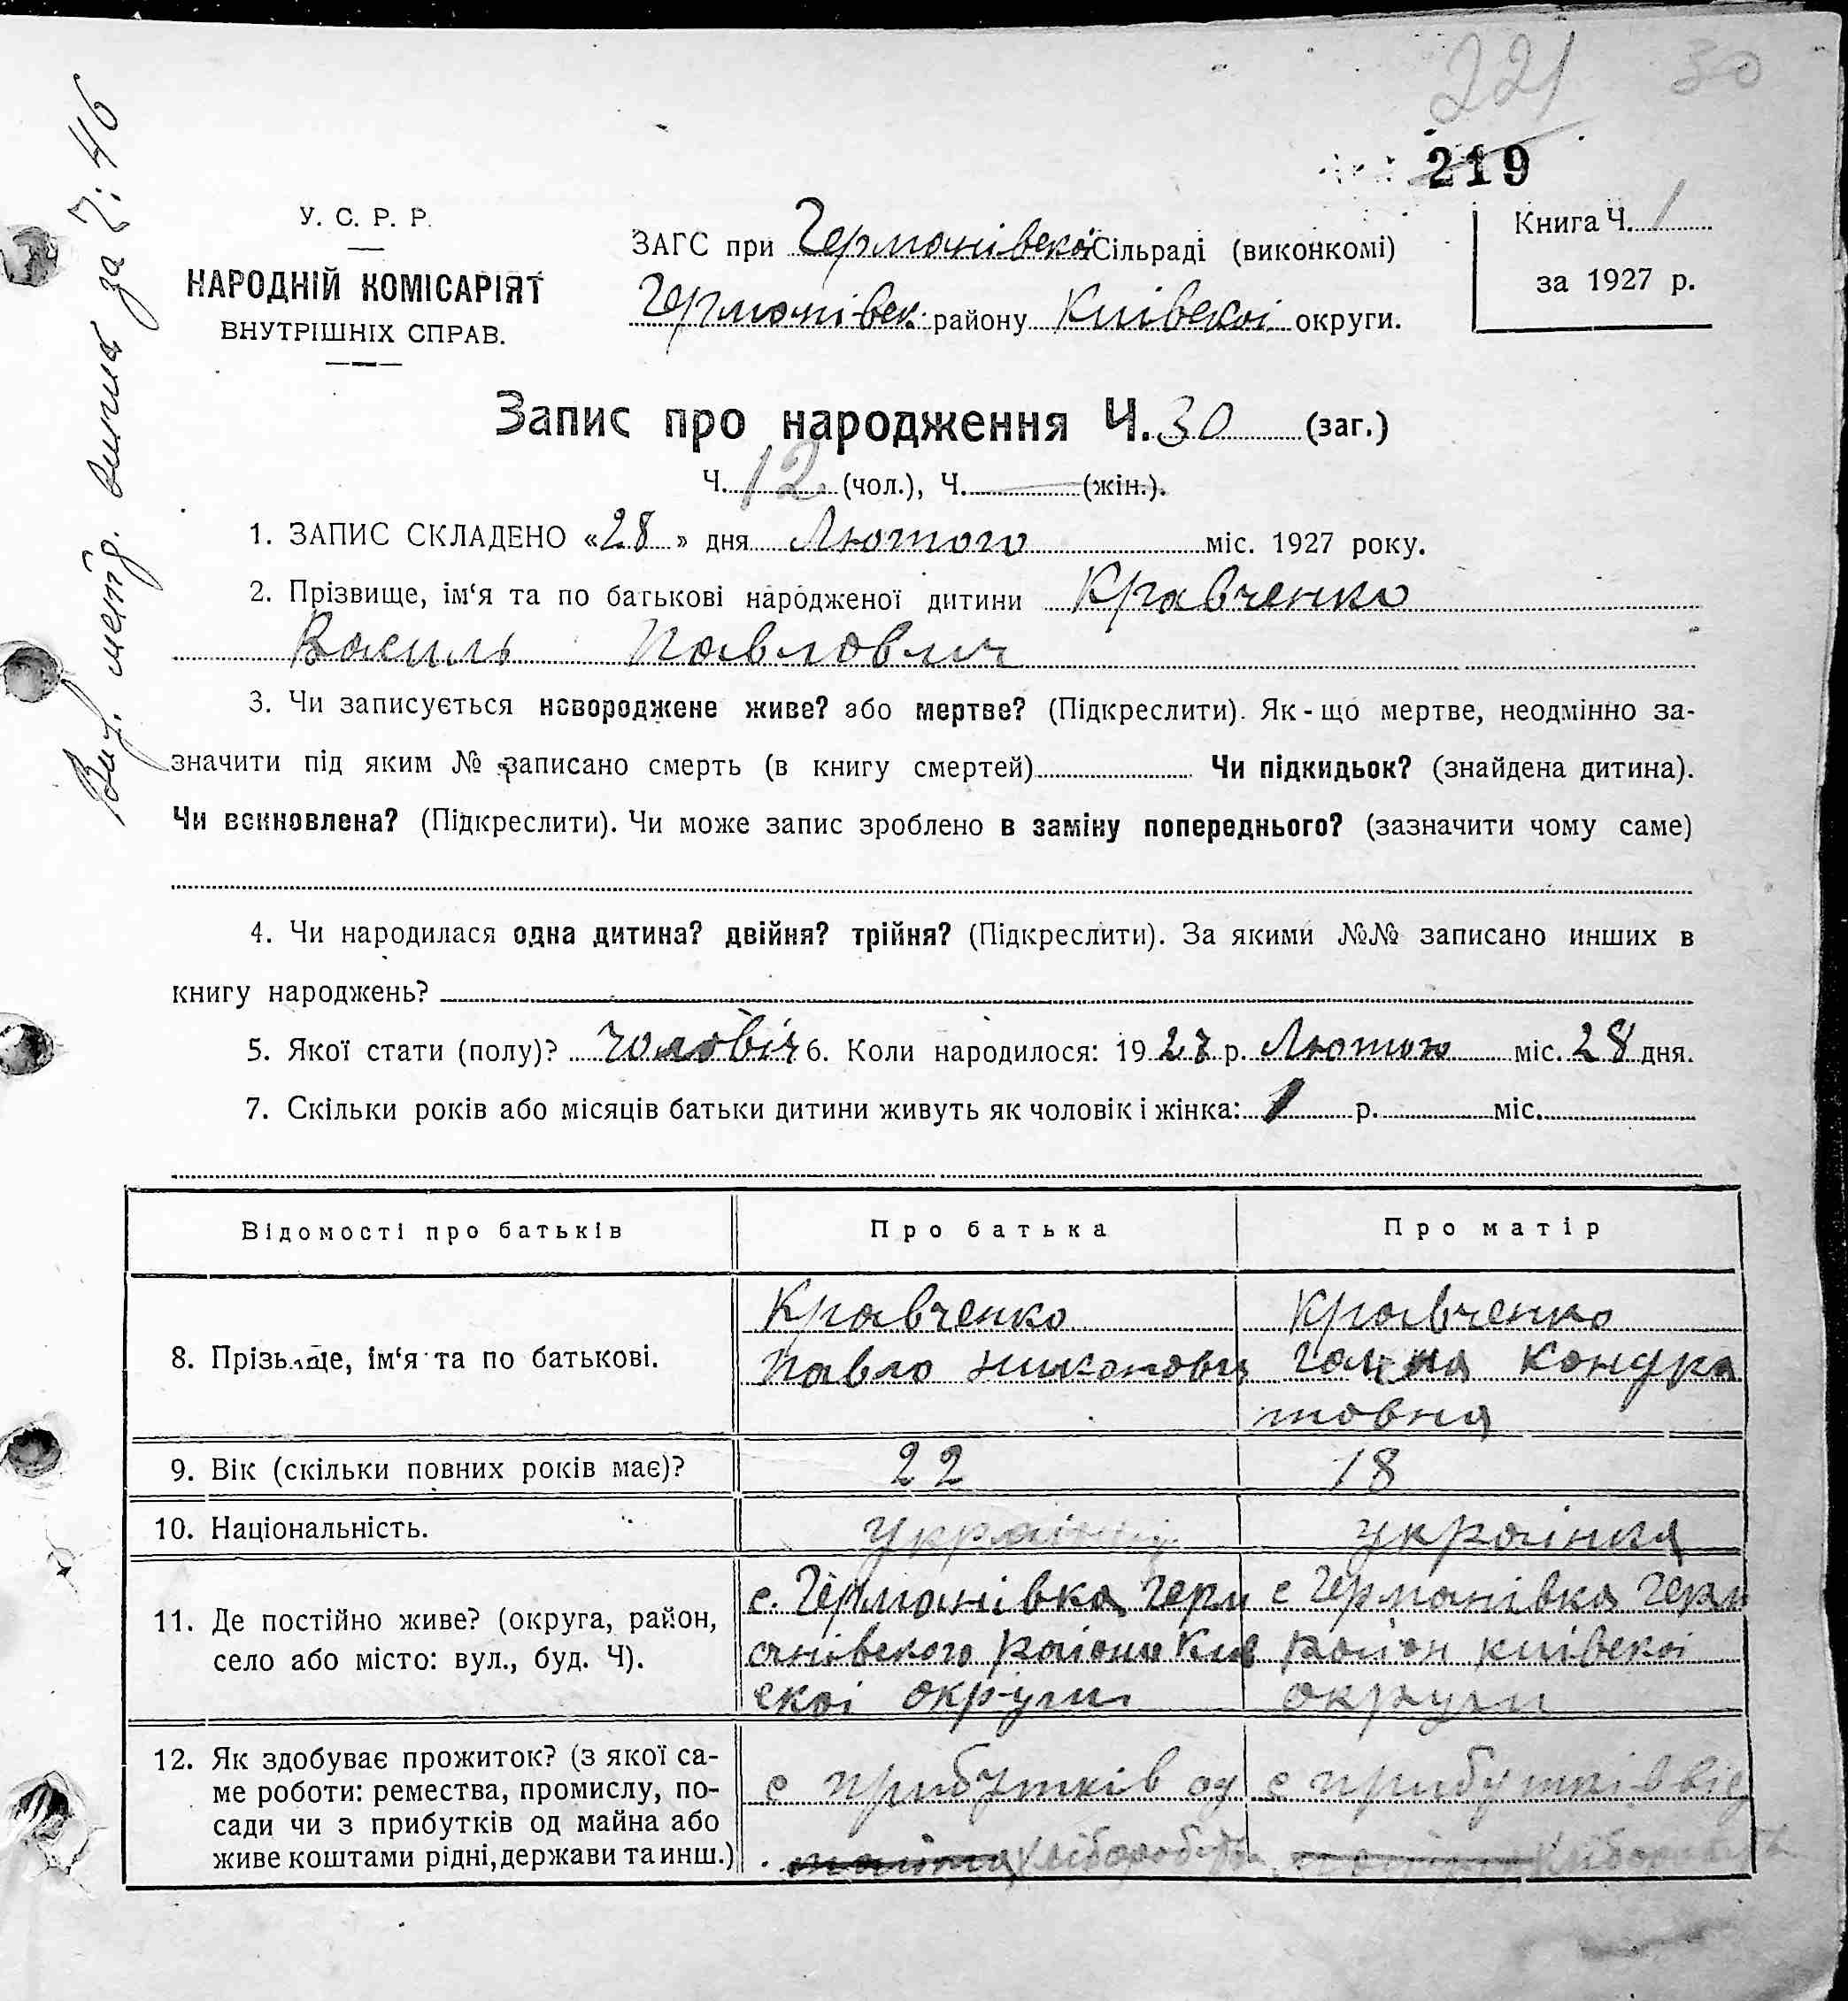 221 30
219
У. С. Р. Р.
НАРОДНІЙ КОМІСАРІЯТ
ВНУТРІШНІХ СПРАВ.
ЗАГС при Германівській Сільраді (виконкомі)
Германівськ. району Київської округи.
Книга Ч. 1
за 1927 р.
Запис про народження Ч. 30 (заг.)
Ч. 12 (чол.), Ч. — (жін.).
1. ЗАПИС СКЛАДЕНО «28» дня Лютого міс. 1927 року.
2. Прізвище, ім‘я та по батькові народженої дитини Кравченко
Василь Павлович
3. Чи записується новороджене живе? або мертве? (Підкреслити). Як-що мертве, неодмінно за-
значити під яким № записано смерть (в книгу смертей) Чи підкидьок? (знайдена дитина).
Чи всиновлена? (Підкреслити). Чи може запис зроблено в заміну попереднього? (зазначити чому саме)
4. Чи народилася одна дитина? двійня? трійня? (Підкреслити). За якими №№ записано инших в
книгу народжень?
5. Якої стати (полу)? чоловіч 6. Коли народилося: 1927 р. Лютого міс. 28 дня.
7. Скільки років або місяців батьки дитини живуть як чоловік і жінка: 1 р. міс.
Відомості про батьків Про батька Про матір
8. Прізвище, ім‘я та по батькові.
Кравченко
Павло Никонович
Кравченко
Галина Кондра
товна
9. Вік (скільки повних років має)? 22 18
10. Національність. україн українка
11. Де постійно живе? (округа, район,
село або місто: вул., буд. Ч).
с. Германівка Герм
анівського району Київ
скої округи
с Германівка Герм
район київскої
округи
12. Як здобуває прожиток? (з якої са-
ме роботи: ремества, промислу, по-
сади чи з прибутків од майна або
живе коштами рідні, держави та инш.)
с прибутків од
хлібороб
с прибутків від
Вид. метр. випис за Ч: 46